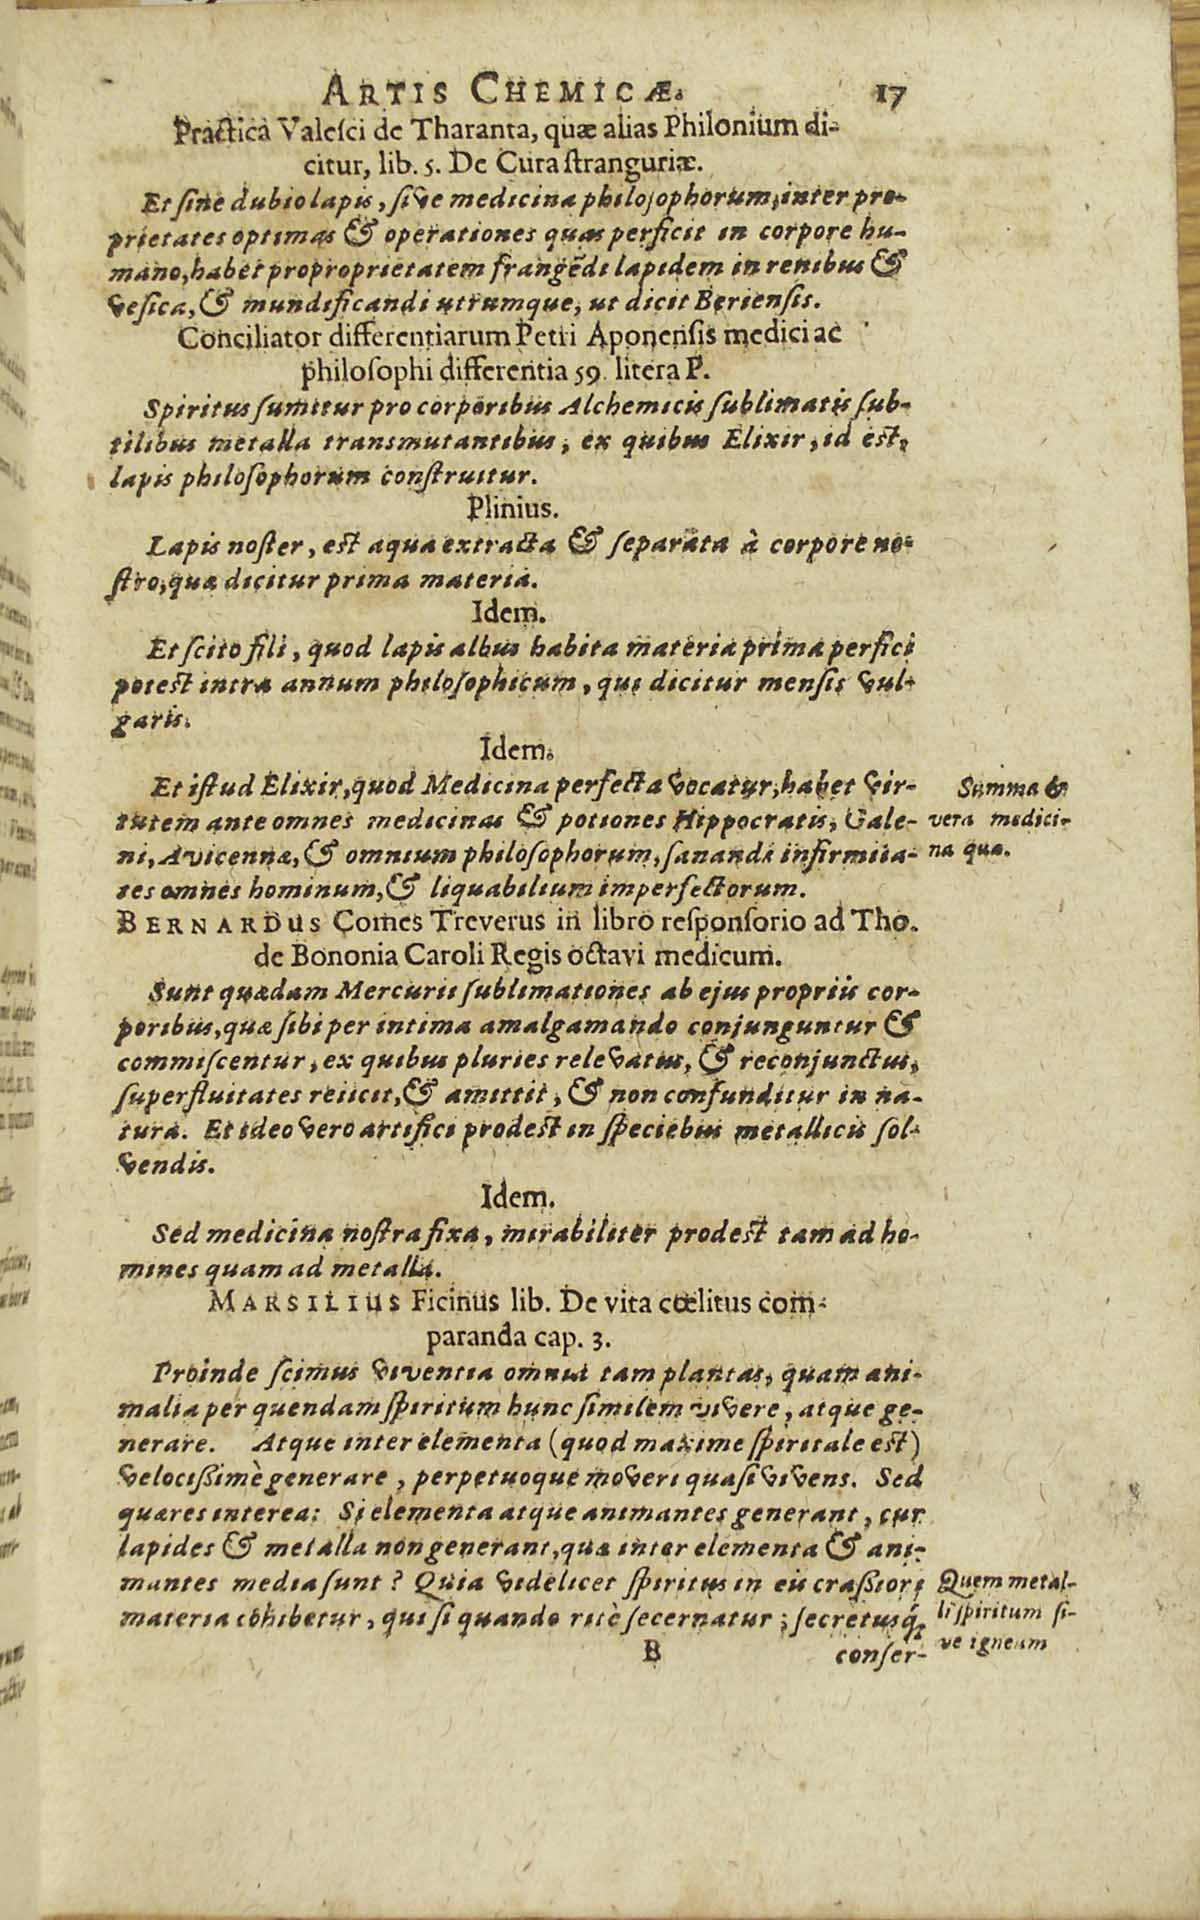 ARTIS CHEMICÆ. 17
Practica Valesci de Tharanta, quæ alias Philonium di-
citur, lib. 5. De Cura stranguriæ.
Et sine dubio lapis, sive medicina philosophorum, inter pro-
prietates optimas & operationes quas perficit in corpore hu-
mano, habet proproprietatem frangēdi lapidem in renibus &
vesica, & mundificandi utrumque, ut dicit Beriensis.
Conciliator differentiarum Petri Aponensis medici ac
philosophi differentia 59. litera P.
Spiritus sumitur pro corporibus Alchemicis sublimatis sub-
tilibus metalla transmutantibus, ex quibus Elixir, id est,
lapis philosophorum construitur.
Plinius.
Lapis noster, est aqua extracta & separata à corpore no-
stro, quæ dicitur prima materia.
Idem.
Et scito fili, quod lapis albus habita materia prima perfici
potest intra annum philosophicum, qui dicitur mensis vul-
garis.
Idem.
Et istud Elixir, quod Medicina perfecta vocatur, habet vir-
tutem ante omnes medicinas & potiones Hippocratis, Gale-
ni, Avicennæ, & omnium philosophorum, sanandi infirmita-
tes omnes hominum, & liquabilium imperfectorum.
Summa &
vera medici-
na quæ.
BERNARDUS Comes Treverus in libro responsorio ad Tho.
de Bononia Caroli Regis octavi medicum.
Sunt quædam Mercurii sublimationes ab ejus propriis cor-
poribus, quæ sibi per intima amalgamando conjunguntur &
commiscentur, ex quibus pluries relevatus, & reconjunctus,
superfluitates reiicit, & amittit, & non confunditur in na-
tura. Et ideo vero artifici prodest in speciebus metallicis sol-
vendis.
Idem.
Sed medicina nostra fixa, mirabiliter prodest tam ad ho-
mines quam ad metalla.
MARSILIUS Ficinus lib. De vita cœlitus com-
paranda cap. 3.
Proinde scimus viventia omnia tam plantas, quam ani-
malia per quendam spiritum hunc similem vivere, atque ge-
nerare. Atque inter elementa (quod maxime spiritale est)
velocissimè generare, perpetuoque moveri quasi vivens. Sed
quæres interea: Si elementa atque animantes generant, cur
lapides & metalla non generant, quæ inter elementa & ani-
mantes media sunt? Quia videlicet spiritus in eis crassiori
materia cohibetur, qui si quando ritè secernatur, secretusq́;
Quem metal-
li spiritum si-
ve igneum
B conser-